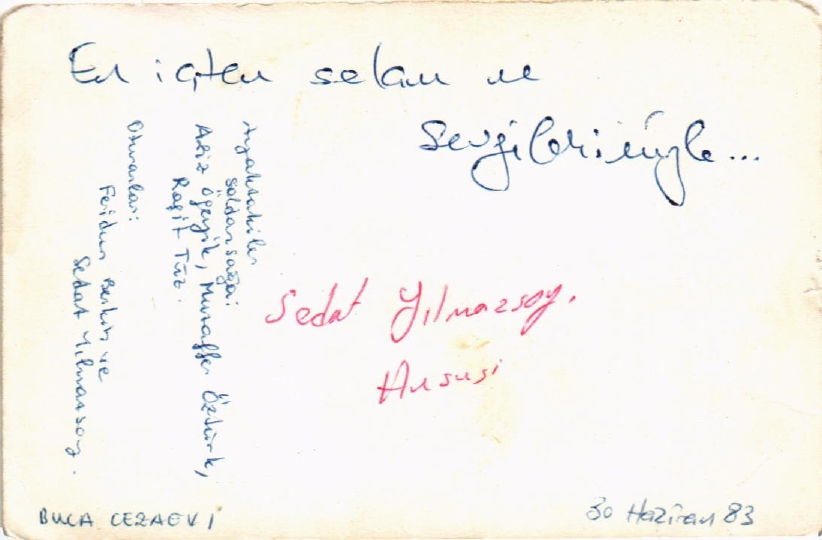 En içten selam ve
Sevgilerimizle...
Ayaktakiler
soldan sağa:
Aziz Özgeyik, Muzaffer Öztürk,
Raşit Tüz.
Oturanlar:
Feridun Berkin ve
Sedat Yılmazsoy.
Sedat Yılmazsoy.
Anısı
BUCA CEZAEVİ
30 Haziran 83